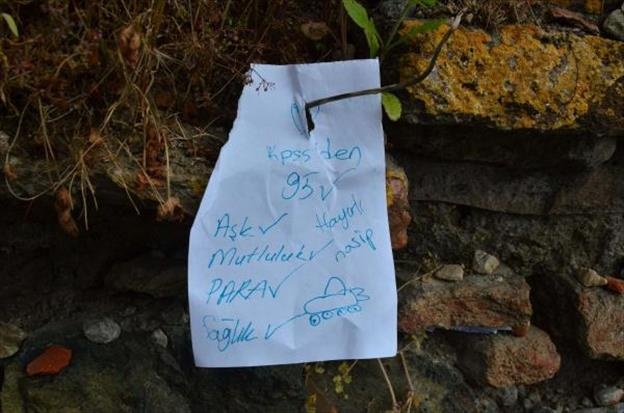 Kpss'den
95 ✓
Aşk ✓
Hayırlı
nasip
Mutluluk ✓
PARA ✓
Sağlık ✓